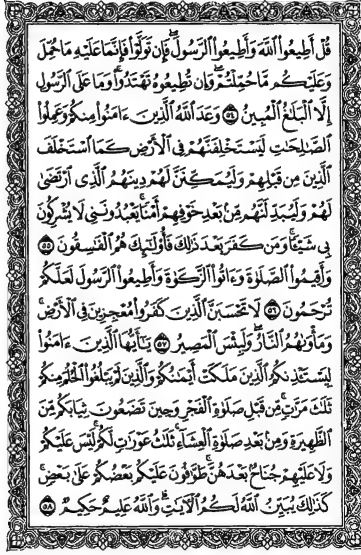 قُلْ أَطِيعُوا۟ ٱللَّهَ وَأَطِيعُوا۟ ٱلرَّسُولَ ۖ فَإِن تَوَلَّوْا۟ فَإِنَّمَا عَلَيْهِ مَا حُمِّلَ
وَعَلَيْكُم مَّا حُمِّلْتُمْ ۖ وَإِن تُطِيعُوهُ تَهْتَدُوا۟ ۚ وَمَا عَلَى ٱلرَّسُولِ
إِلَّا ٱلْبَلَٰغُ ٱلْمُبِينُ ٥٤ وَعَدَ ٱللَّهُ ٱلَّذِينَ ءَامَنُوا۟ مِنكُمْ وَعَمِلُوا۟
ٱلصَّٰلِحَٰتِ لَيَسْتَخْلِفَنَّهُمْ فِى ٱلْأَرْضِ كَمَا ٱسْتَخْلَفَ
ٱلَّذِينَ مِن قَبْلِهِمْ وَلَيُمَكِّنَنَّ لَهُمْ دِينَهُمُ ٱلَّذِى ٱرْتَضَىٰ
لَهُمْ وَلَيُبَدِّلَنَّهُم مِّنۢ بَعْدِ خَوْفِهِمْ أَمْنًا ۚ يَعْبُدُونَنِى لَا يُشْرِكُونَ
بِى شَيْـًٔا ۚ وَمَن كَفَرَ بَعْدَ ذَٰلِكَ فَأُو۟لَٰٓئِكَ هُمُ ٱلْفَٰسِقُونَ ٥٥
وَأَقِيمُوا۟ ٱلصَّلَوٰةَ وَءَاتُوا۟ ٱلزَّكَوٰةَ وَأَطِيعُوا۟ ٱلرَّسُولَ لَعَلَّكُمْ
تُرْحَمُونَ ٥٦ لَا تَحْسَبَنَّ ٱلَّذِينَ كَفَرُوا۟ مُعْجِزِينَ فِى ٱلْأَرْضِ ۚ
وَمَأْوَىٰهُمُ ٱلنَّارُ ۖ وَلَبِئْسَ ٱلْمَصِيرُ ٥٧ يَٰٓأَيُّهَا ٱلَّذِينَ ءَامَنُوا۟
لِيَسْتَـْٔذِنكُمُ ٱلَّذِينَ مَلَكَتْ أَيْمَٰنُكُمْ وَٱلَّذِينَ لَمْ يَبْلُغُوا۟ ٱلْحُلُمَ مِنكُمْ
ثَلَٰثَ مَرَّٰتٍ ۚ مِّن قَبْلِ صَلَوٰةِ ٱلْفَجْرِ وَحِينَ تَضَعُونَ ثِيَابَكُم مِّنَ
ٱلظَّهِيرَةِ وَمِنۢ بَعْدِ صَلَوٰةِ ٱلْعِشَآءِ ۚ ثَلَٰثُ عَوْرَٰتٍ لَّكُمْ ۚ لَيْسَ عَلَيْكُمْ
وَلَا عَلَيْهِمْ جُنَاحٌۢ بَعْدَهُنَّ ۚ طَوَّٰفُونَ عَلَيْكُم بَعْضُكُمْ عَلَىٰ بَعْضٍ ۚ
كَذَٰلِكَ يُبَيِّنُ ٱللَّهُ لَكُمُ ٱلْـَٔايَٰتِ ۗ وَٱللَّهُ عَلِيمٌ حَكِيمٌ ٥٨